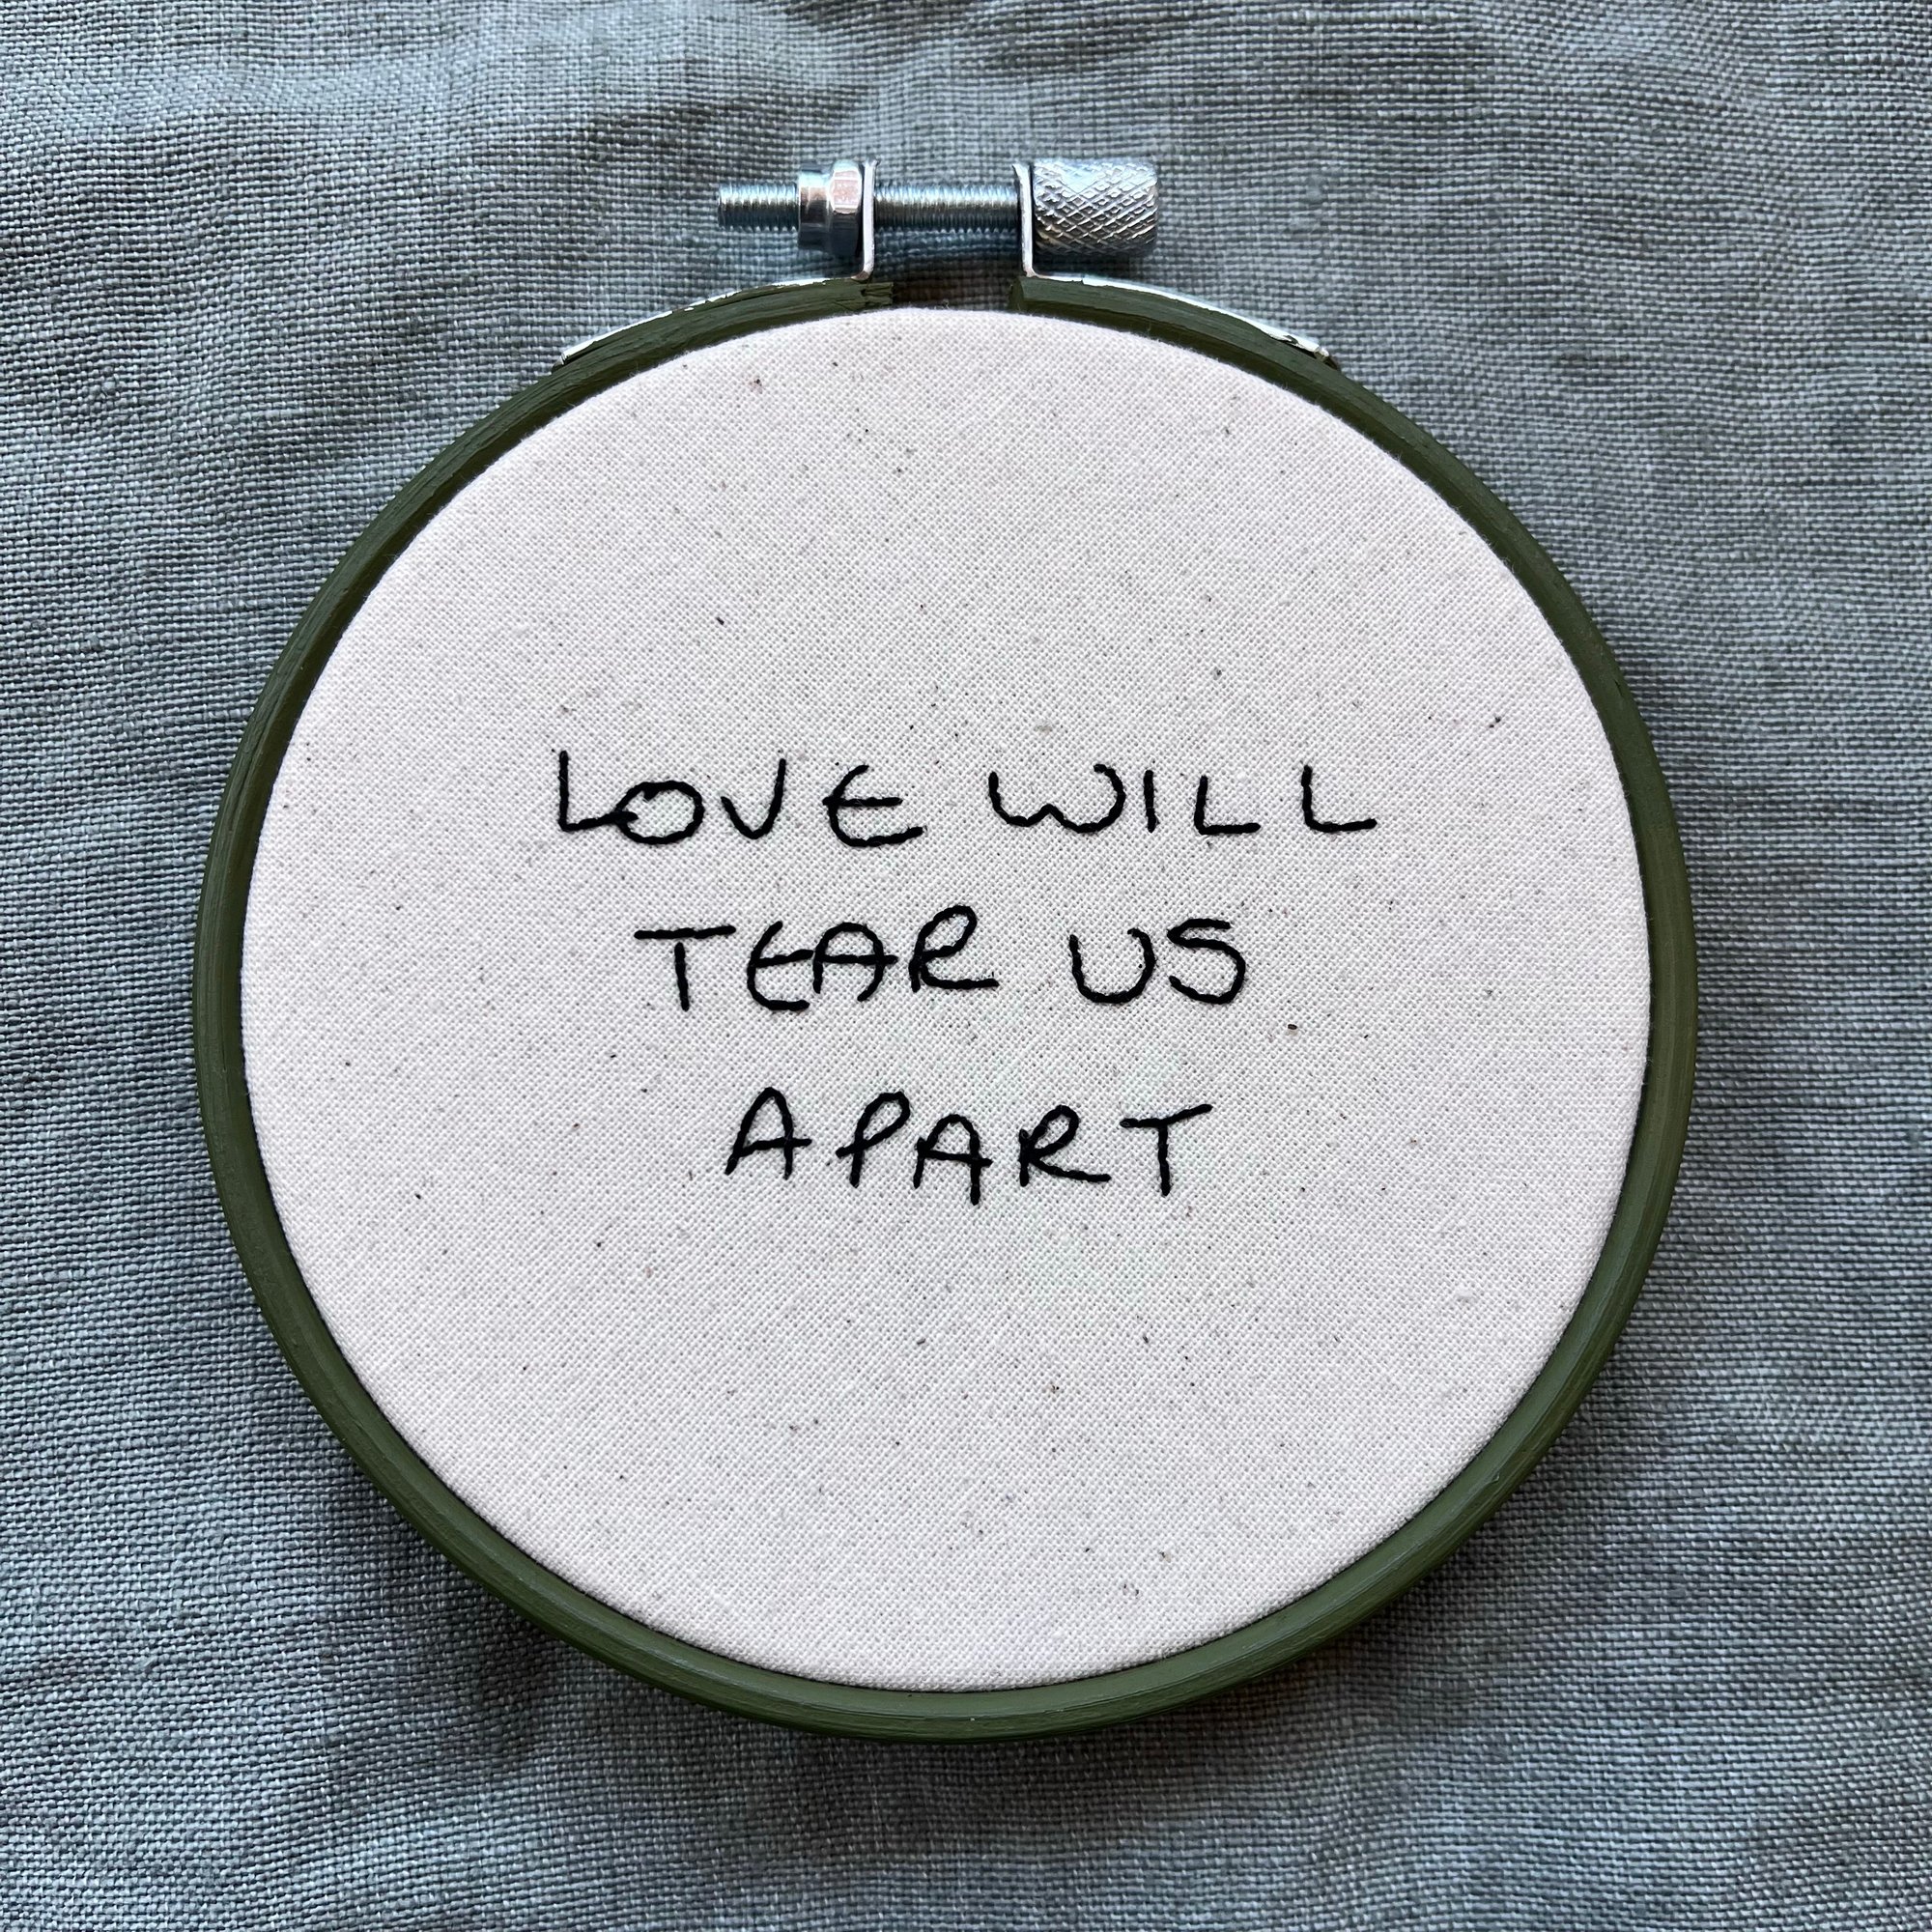 LOVE WILL
TEAR US
APART